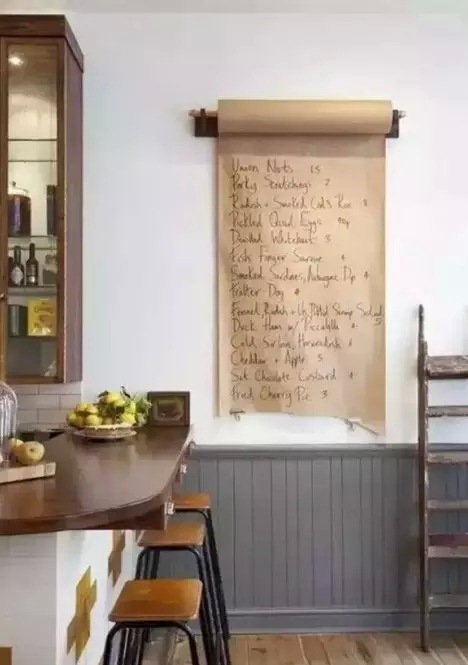 Union Nuts 1.5
Porky Scratchings 2
Radish + Smoked Cod's Roe
Pickled Quail Eggs 90p
Devilled Whitebait 5
Fish Finger
Smoked Sardines, Aubergine Dip 4
Fritter Dog 4
Fennel, Radish + Shrimp Salad 5
Duck Ham w/ Piccalilli 4
Cold Sirloin, Horseradish
Cheddar + Apple 5
Salt Chocolate Custard 4
Fried Cherry Pie 3